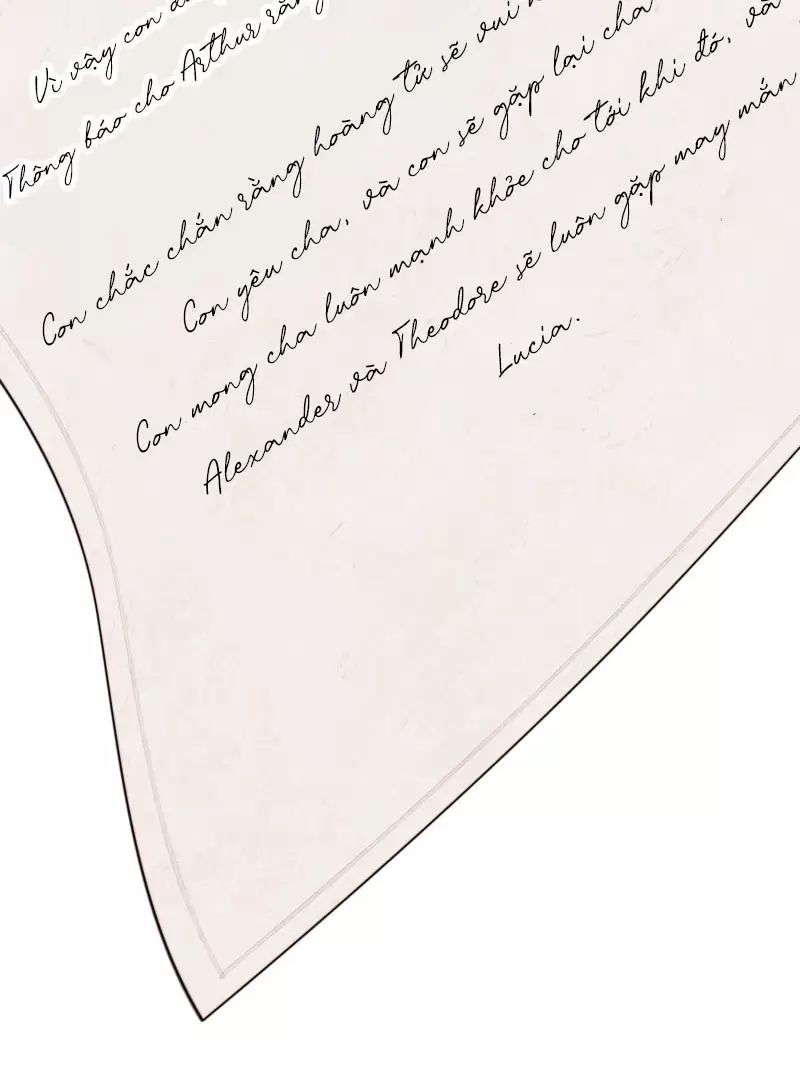 Vì vậy con
Thông báo cho Arthur rằng
Con chắc chắn rằng hoàng tử sẽ vui
Con yêu cha, và con sẽ gặp lại cha
Con mong cha luôn mạnh khỏe cho tới khi đó, và
Alexander và Theodore sẽ luôn gặp may mắn
Lucia.